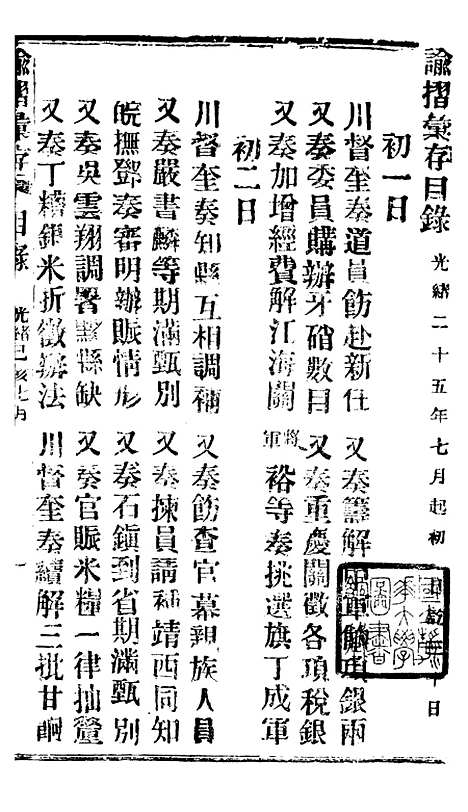 諭摺彙存目錄 光緒二十五年七月起初 日
初一日
川督奎奏道員飭赴新任 又奏籌解 軍餉 銀兩
又奏委員購辦牙硝數目 又奏重慶關徵各項稅銀
又奏加增經費解江海關 將軍裕等奏挑選旗丁成軍
初二日
川督奎奏知縣互相調補 又奏飭查官幕親族人員
又奏嚴書麟等期滿甄別 又奏揀員請補靖西同知
皖撫鄧奏審明辦賑情形 又奏石鎮到省期滿甄別
又奏吳雲翔調署 縣缺 又奏官賑米糧一律抽釐
又奏丁糟銀米折徵辦法 川督奎奏續解三批甘餉
諭摺彙存 目錄 光緒己亥七月 一